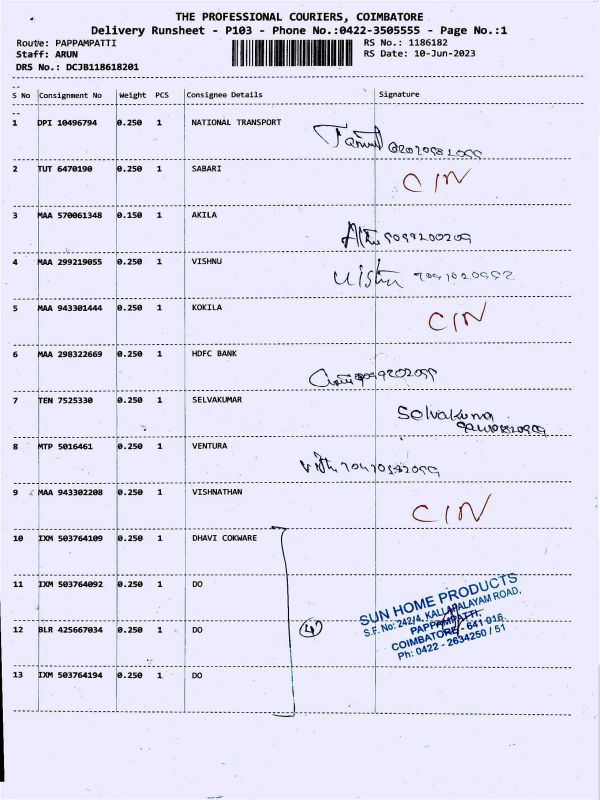 THE PROFESSIONAL COURIERS, COIMBATORE
Delivery Runsheet - P103 - Phone No.:0422-3505555 - Page No.:1
Route: PAPPAMPATTI RS No.: 1186182
Staff: ARUN RS Date: 10-Jun-2023
DRS No.: DCJB118618201
S No Consignment No Weight PCS Consignee Details Signature
1 DPI 10496794 0.250 1 NATIONAL TRANSPORT
2 TUT 6470190 0.250 1 SABARI CIN
3 MAA 570061348 0.150 1 AKILA
4 MAA 299219055 0.250 1 VISHNU
5 MAA 943301444 0.250 1 KOKILA CIN
6 MAA 298322669 0.250 1 HDFC BANK
7 TEN 7525330 0.250 1 SELVAKUMAR
8 MTP 5016461 0.250 1 VENTURA
9 MAA 943302208 0.250 1 VISHNATHAN CIN
10 IXM 503764109 0.250 1 DHAVI COKWARE
11 IXM 503764092 0.250 1 DO
12 BLR 425667034 0.250 1 DO 4
13 IXM 503764194 0.250 1 DO
SUN HOME PRODUCTS
S.F. No: 242/4, KALLAPALAYAM ROAD,
PAPPAMPATTI,
COIMBATORE - 641 016.
Ph: 0422 - 2634250 / 51